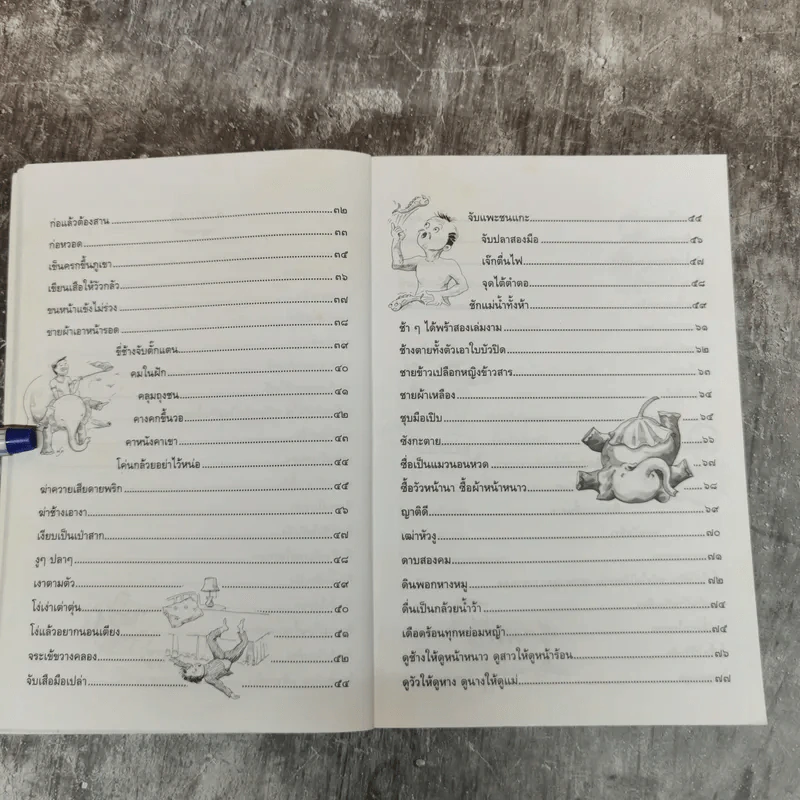 ก่อแล้วต้องสาน ๓๒
ก่อหวอด ๓๓
เข็นครกขึ้นภูเขา ๓๔
เขียนเสือให้วัวกลัว ๓๖
ขนหน้าแข้งไม่ร่วง ๓๗
ขายผ้าเอาหน้ารอด ๓๘
ขี่ช้างจับตั๊กแตน ๓๙
คมในฝัก ๔๐
คลุมถุงชน ๔๑
คางคกขึ้นวอ ๔๒
คาหนังคาเขา ๔๓
โค่นกล้วยอย่าไว้หน่อ ๔๔
ฆ่าควายเสียดายพริก ๔๕
ฆ่าช้างเอางา ๔๖
เงียบเป็นเป่าสาก ๔๗
งูๆ ปลาๆ ๔๘
เงาตามตัว ๔๙
โง่เง่าเต่าตุ่น ๕๐
โง่แล้วอยากนอนเตียง ๕๑
จระเข้ขวางคลอง ๕๒
จับเสือมือเปล่า ๕๔
จับแพะชนแกะ ๕๕
จับปลาสองมือ ๕๖
เจ๊กตื่นไฟ ๕๗
จุดไต้ตำตอ ๕๘
ชักแม่น้ำทั้งห้า ๕๙
ช้า ๆ ได้พร้าสองเล่มงาม ๖๑
ช้างตายทั้งตัวเอาใบบัวปิด ๖๒
ชายข้าวเปลือกหญิงข้าวสาร ๖๓
ชายผ้าเหลือง ๖๔
ชุบมือเปิบ ๖๕
ซังกะตาย ๖๖
ซื่อเป็นแมวนอนหวด ๖๗
ซื้อวัวหน้านา ซื้อผ้าหน้าหนาว ๖๘
ญาติดี ๖๙
เฒ่าหัวงู ๗๐
ดาบสองคม ๗๑
ดินพอกหางหมู ๗๒
ตื่นเป็นกล้วยน้ำว้า ๗๔
เดือดร้อนทุกหย่อมหญ้า ๗๕
ดูช้างให้ดูหน้าหนาว ดูสาวให้ดูหน้าร้อน ๗๖
ดูวัวให้ดูหาง ดูนางให้ดูแม่ ๗๗